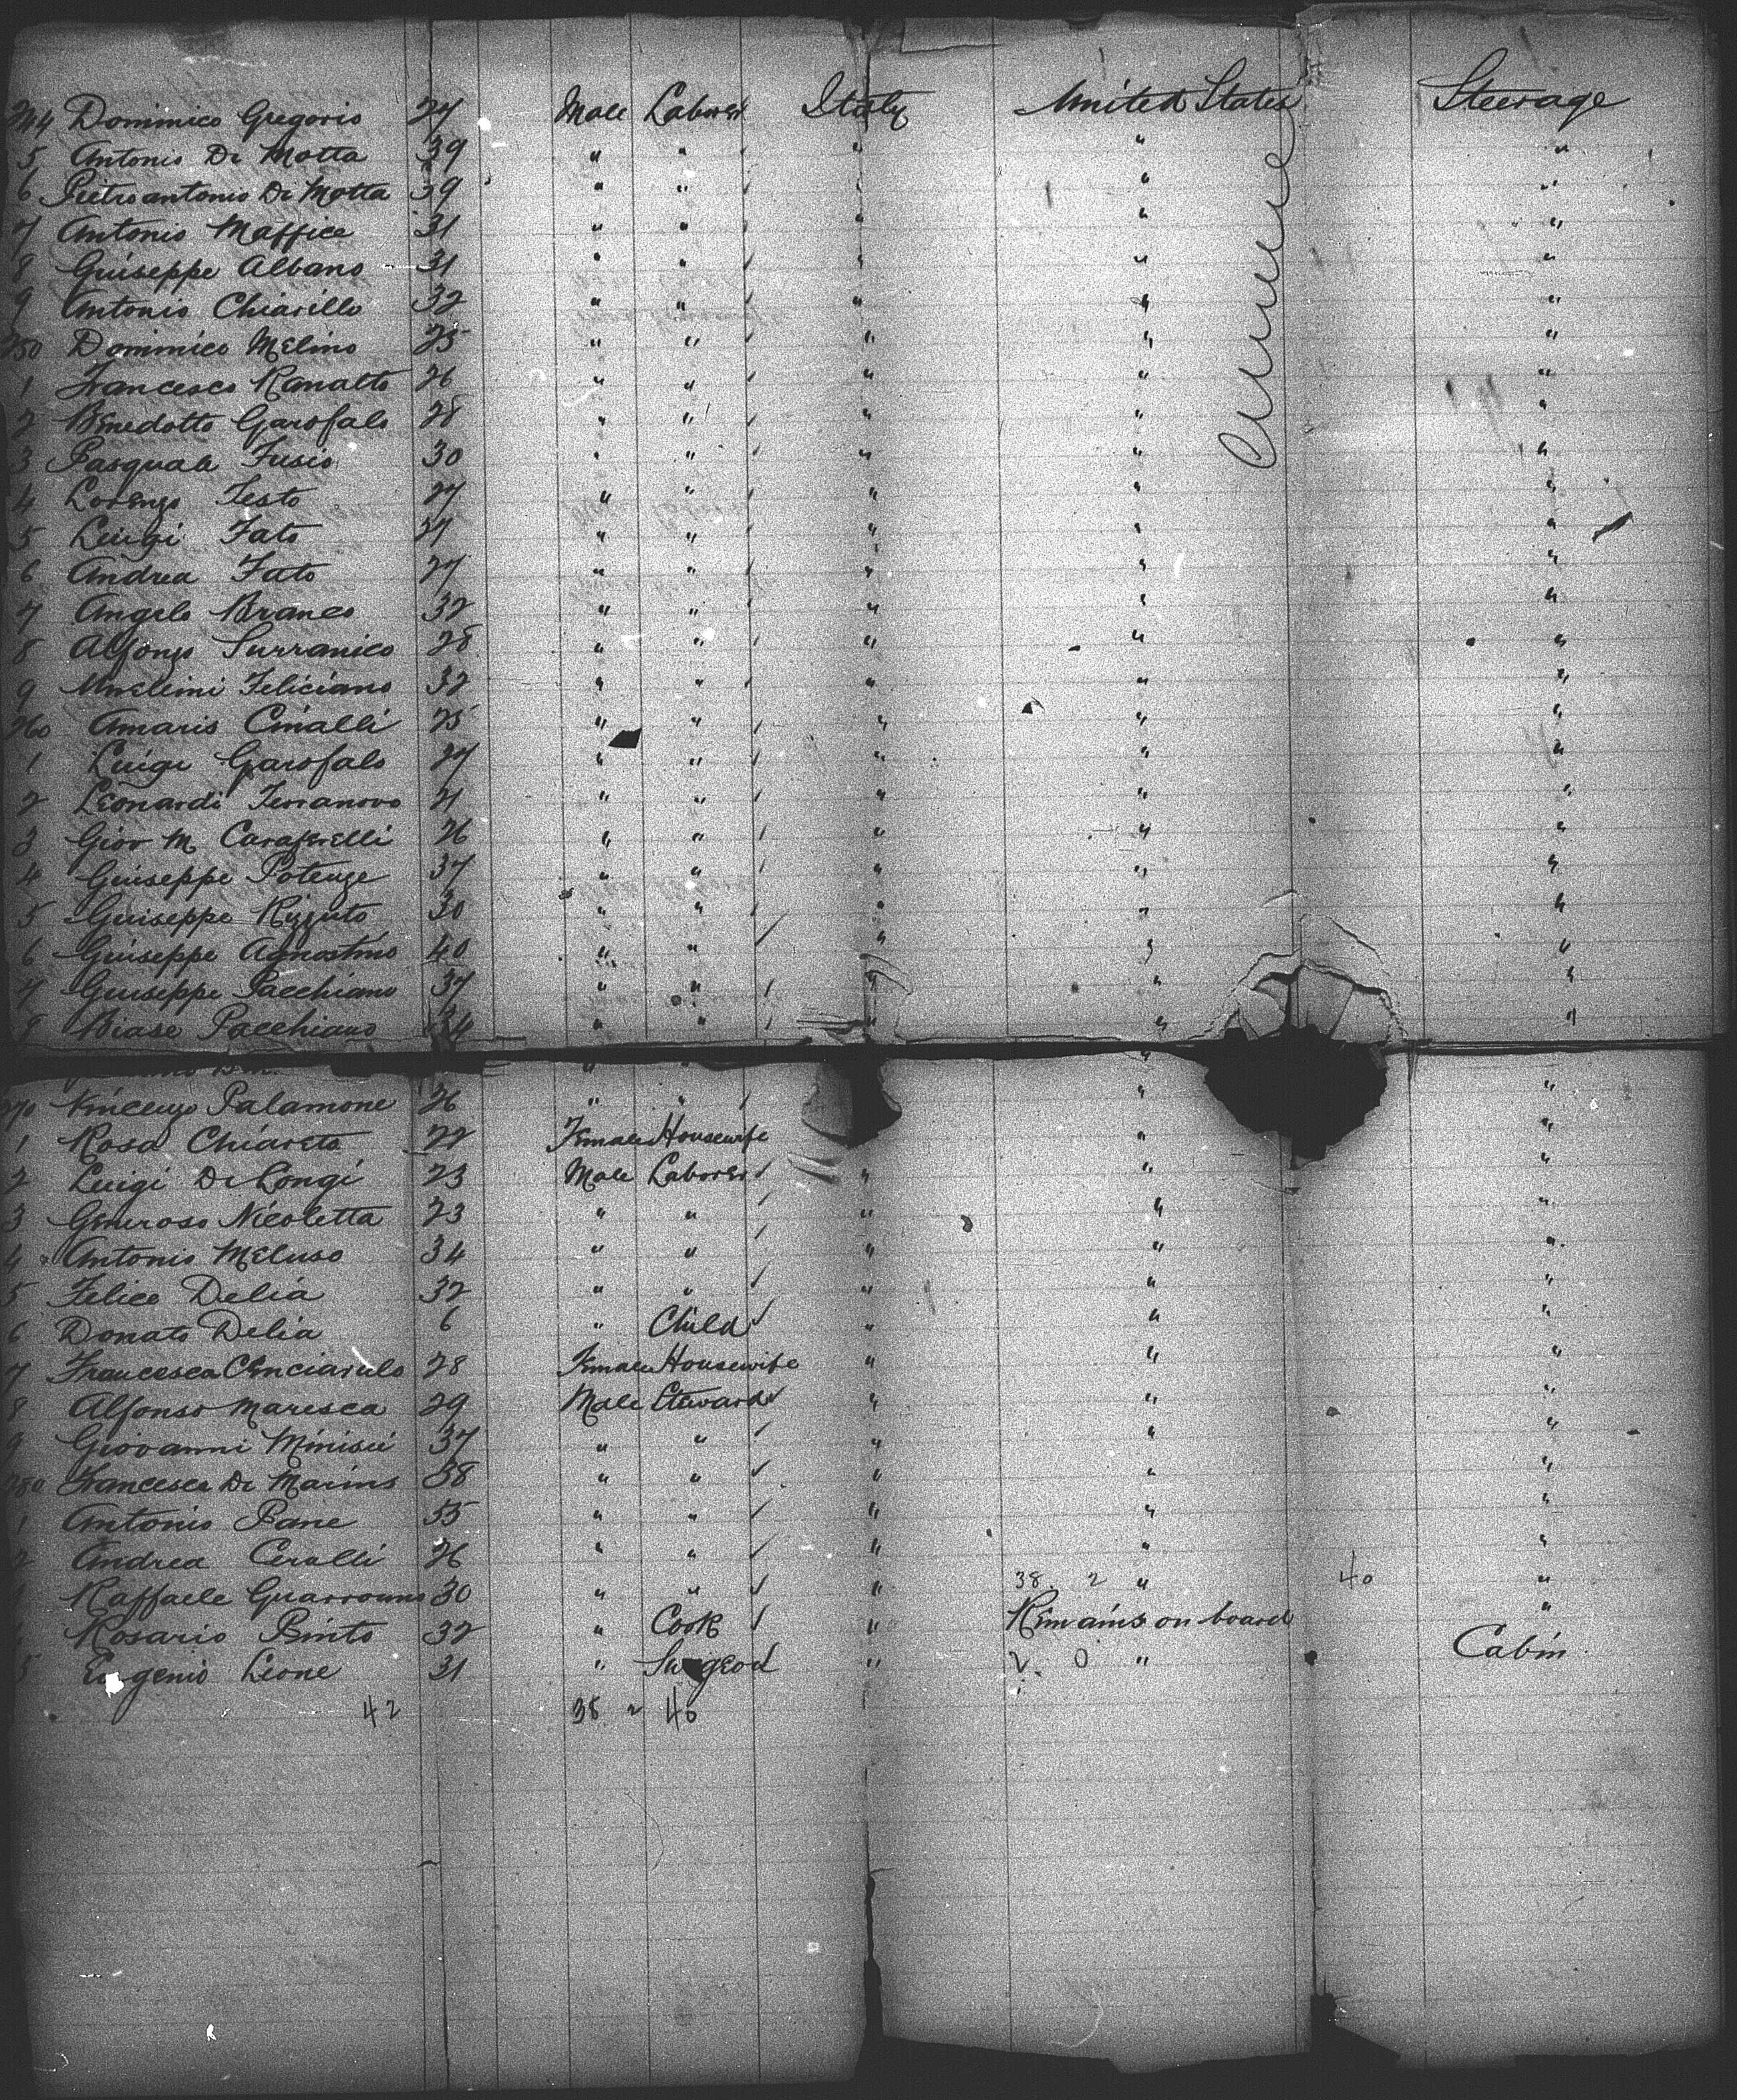 244 Dominico Gregorio 27 Male Laborer Italy United States Steerage
5 Antonio Di Motta 39 " " " " "
6 Pietroantonio Di Motta 39 " " " " "
7 Antonio Maffice 31 " " " " "
8 Guiseppe Albano 31 " " " " "
9 Antonio Chiarillo 32 " " " " "
250 Dominico Melino 25 " " " " "
1 Francesco Ranalto 26 " " " " "
2 Benedotto Garofalo 28 " " " " "
3 Pasquale Fusio 30 " " " " "
4 Lorenzo Testo 27 " " " " "
5 Luigi Fato 34 " " " " "
6 Andrea Fato 27 " " " " "
7 Angelo Branco 32 " " " " "
8 Alfonzo Surranico 28 " " " " "
9 Feliciano 32 " " " " "
260 Amaris Cinalli 25 " " " " "
1 Luigi Garofalo 27 " " " " "
2 Leonardi Terranovo 21 " " " " "
3 Giov M 26 " " " " "
4 Guiseppe Potenze 37 " " " " "
5 Guiseppe Rizzuto 30 " " " " "
6 Guiseppe Agnostino 40 " " " " "
7 Guiseppe Pacchiano 37 " " " " "
8 Biase Pacchiano 34 " " " " "
270 Vincenzo Palamone 26 " " " "
1 Rosa Chiareto 22 Female Housewife " "
2 Luigi Di Longi 23 Male Laborer " " "
3 Generoso Nicoletta 23 " " " " "
4 Antonio Meluso 34 " " " " "
5 Felice Delia 32 " " " " "
6 Donato Delia 6 " Child " " "
7 Francesca Cenciarulo 28 Female Housewife " " "
8 Alfonso Maresca 29 Male Steward " " "
9 Giovanni Minisci 37 " " " " "
280 Francesca Di Marino 38 " " " " "
1 Antonio Pane 55 " " " " "
2 Andrea Ceralli 26 " " " " "
Raffaele 30 " " " 38 2 " 40 "
Rosario Pinto 32 " Cook " Remains on board "
5 Eugenio Leone 31 " Surgeon " 2. 0 " Cabin
42 38 2 40